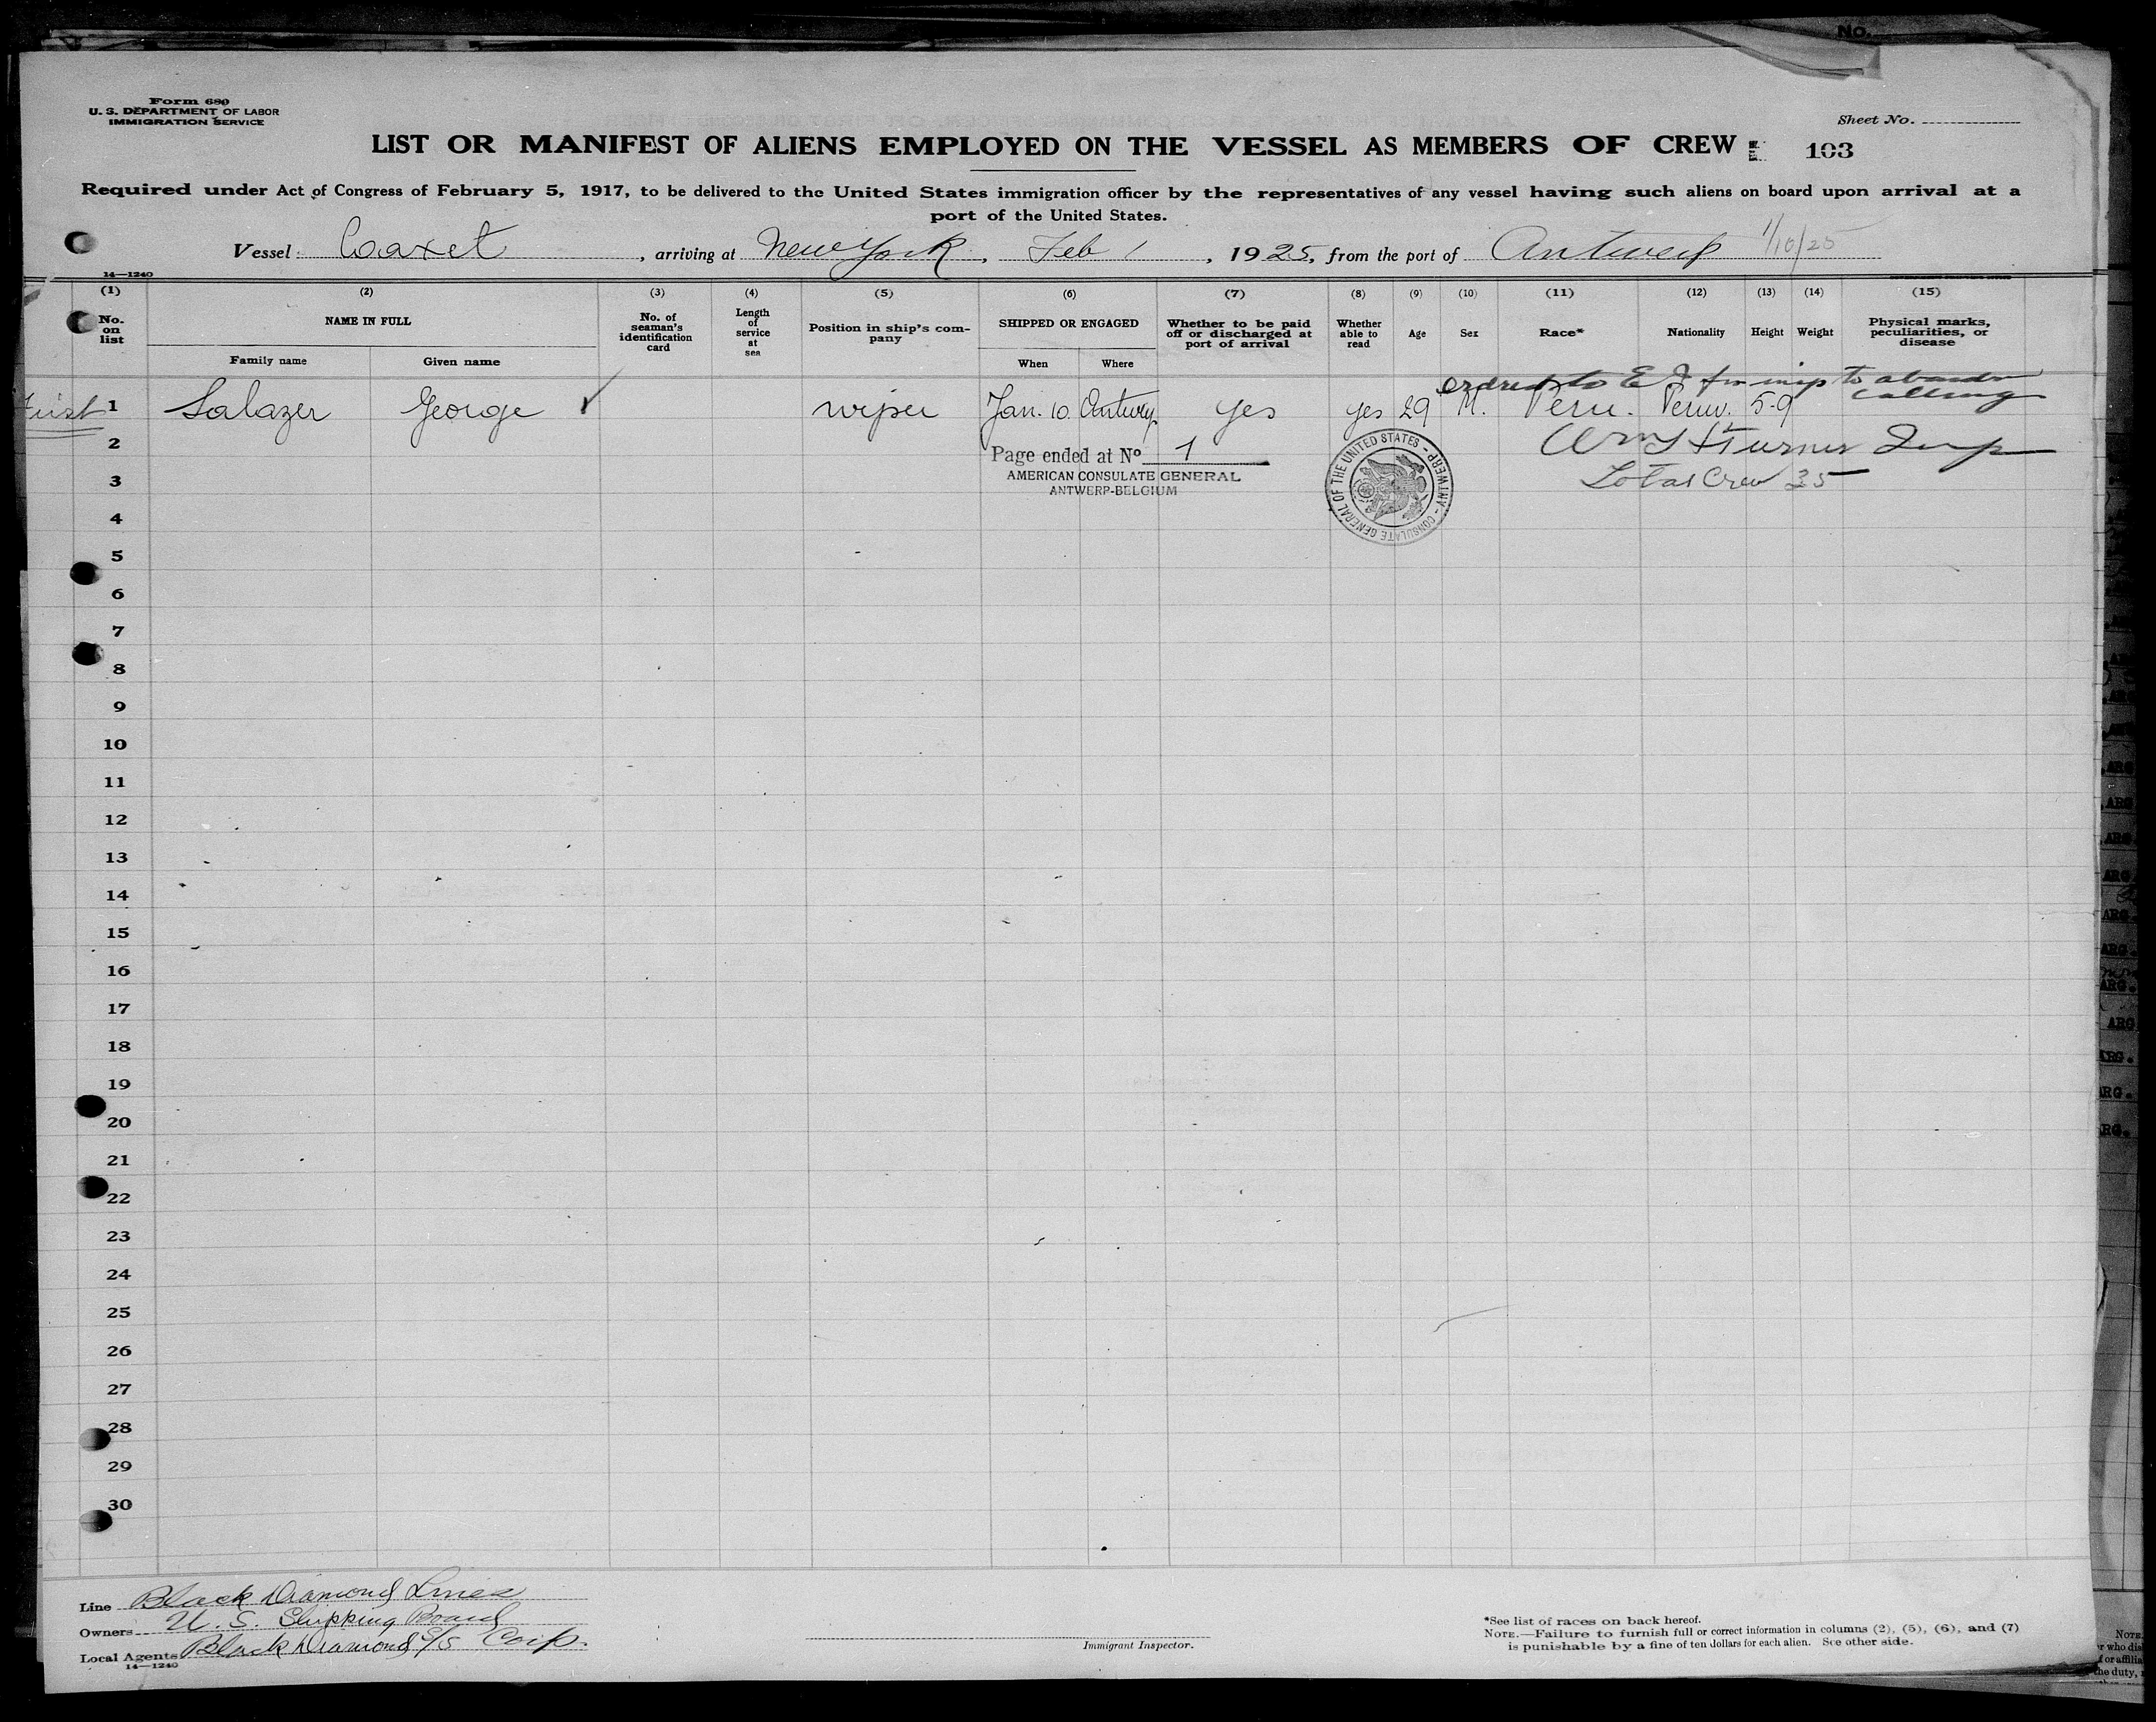 No.
Form 680
U. S. DEPARTMENT OF LABOR
IMMIGRATION SERVICE
Sheet No.
LIST OR MANIFEST OF ALIENS EMPLOYED ON THE VESSEL AS MEMBERS OF CREW 103
Required under Act of Congress of February 5, 1917, to be delivered to the United States immigration officer by the representatives of any vessel having such aliens on board upon arrival at a
port of the United States.
Vessel: Coaxet, arriving at New York, Feb 1, 1925, from the port of Antwerp 1/10/25
14—1240
(1) (2) (3) (4) (5) (6) (7) (8) (9) (10) (11) (12) (13) (14) (15)
No. on list NAME IN FULL No. of seaman's identification card Length of service at sea Position in ship's company SHIPPED OR ENGAGED Whether to be paid off or discharged at port of arrival Whether able to read Age Sex Race* Nationality Height Weight Physical marks, peculiarities, or disease
Family name Given name When Where
ordered to E I for insp to abandon
calling
First 1 Salazer George ✓ wiper Jan. 10. Antwerp yes yes 29 M. Peru. Peruv. 5-9
2 Page ended at No 1 Turner Insp
3 AMERICAN CONSULATE GENERAL Total Crew 35
ANTWERP-BELGIUM
CONSULATE GENERAL OF THE UNITED STATES - ANTWERP -
4
5
6
7
8
9
10
11
12
13
14
15
16
17
18
19
20
21
22
23
24
25
26
27
28
29
30
Line Black Diamond Lines
Owners U. S. Shipping Board
Local Agents Black Diamond S/S Corp.
14—1240
Immigrant Inspector.
*See list of races on back hereof.
NOTE.—Failure to furnish full or correct information in columns (2), (5), (6), and (7)
is punishable by a fine of ten dollars for each alien. See other side.